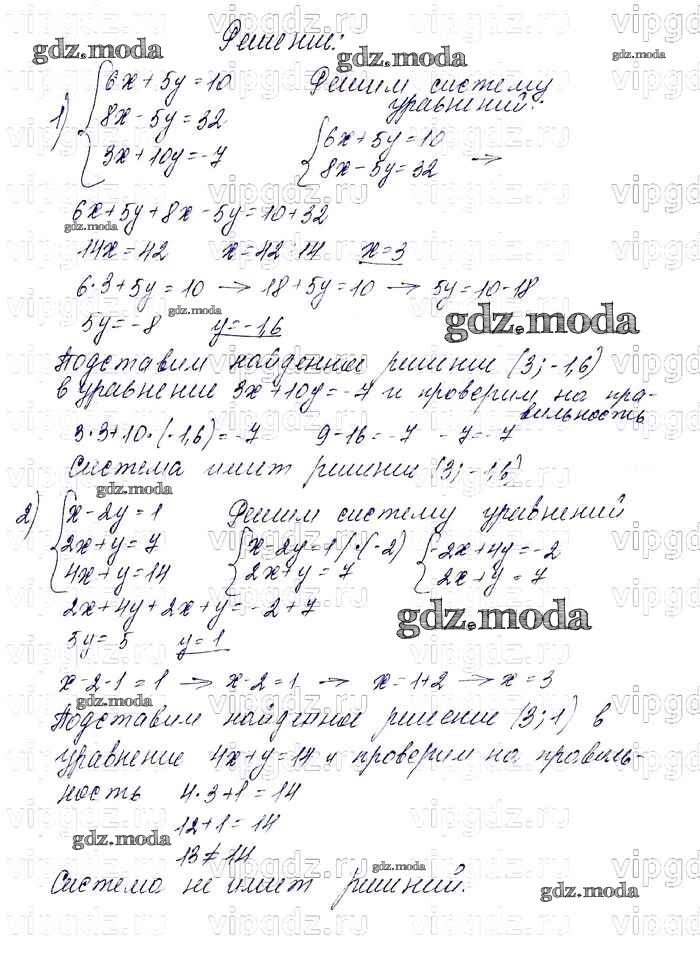 Решение:
1) {6x+5y=10
8x-5y=32
3x+10y=-7
Решим систему
уравнений:
{6x+5y=10
8x-5y=32 →
6x+5y+8x-5y=10+32
14x=42 x=42:14 x=3
6·3+5y=10 → 18+5y=10 → 5y=10-18
5y=-8 y=-1,6
Подставим найденное решение (3;-1,6)
в уравнение 3x+10y=-7 и проверим на пра-
вильность
3·3+10·(-1,6)=-7 9-16=-7 -7=-7
Система имеет решение (3;-1,6)
2) {x-2y=1
2x+y=7
4x+y=14
Решим систему уравнений
{x-2y=1 |·(-2)
2x+y=7
{-2x+4y=-2
2x+y=7
2x+4y+2x+y=-2+7
5y=5 y=1
x-2·1=1 → x-2=1 → x=1+2 → x=3
Подставим найденное решение (3;1) в
уравнение 4x+y=14 и проверим на правиль-
ность 4·3+1=14
12+1=14
13≠14
Система не имеет решений.
gdz.moda
vipgdz.ru